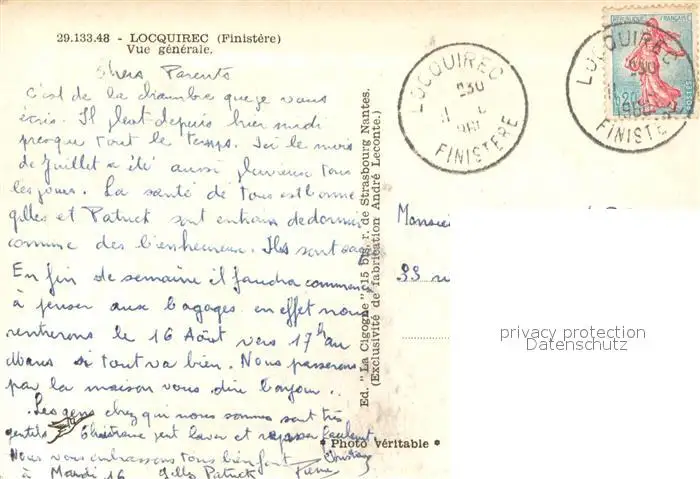 29.133.48 - LOCQUIREC (Finistère)
Vue générale.
Chers Parents
C'est de la chambre que je vous
écris. Il pleut depuis hier midi
presque tout le temps. Ici le mois
de Juillet a été aussi pluvieux tous
les jours. La santé de tous est bonne
Gilles et Patrick sont en train de dormir
comme des bienheureux. Ils sont sages
En fin de semaine il faudra commencer
à penser aux bagages en effet nous
rentrerons le 16 Août vers 17h au
Mans si tout va bien. Nous passerons
par la maison vous dire bonjour..
Les gens chez qui nous sommes sont très
gentils Christiane peut laver et repasser facilement
Nous vous embrassons tous bien fort Christiane
à Mardi 16 Gilles Patrick Pierre
Ed. "La Cigogne" 15 bis, r. de Strasbourg Nantes.
(Exclusivité de fabrication André Leconte.)
* Photo véritable *
LOCQUIREC
FINISTERE
REPUBLIQUE FRANÇAISE
0,20
POSTES
LOCQUIREC
1960
FINISTE
Monsieur
33 ru
privacy protection
Datenschutz